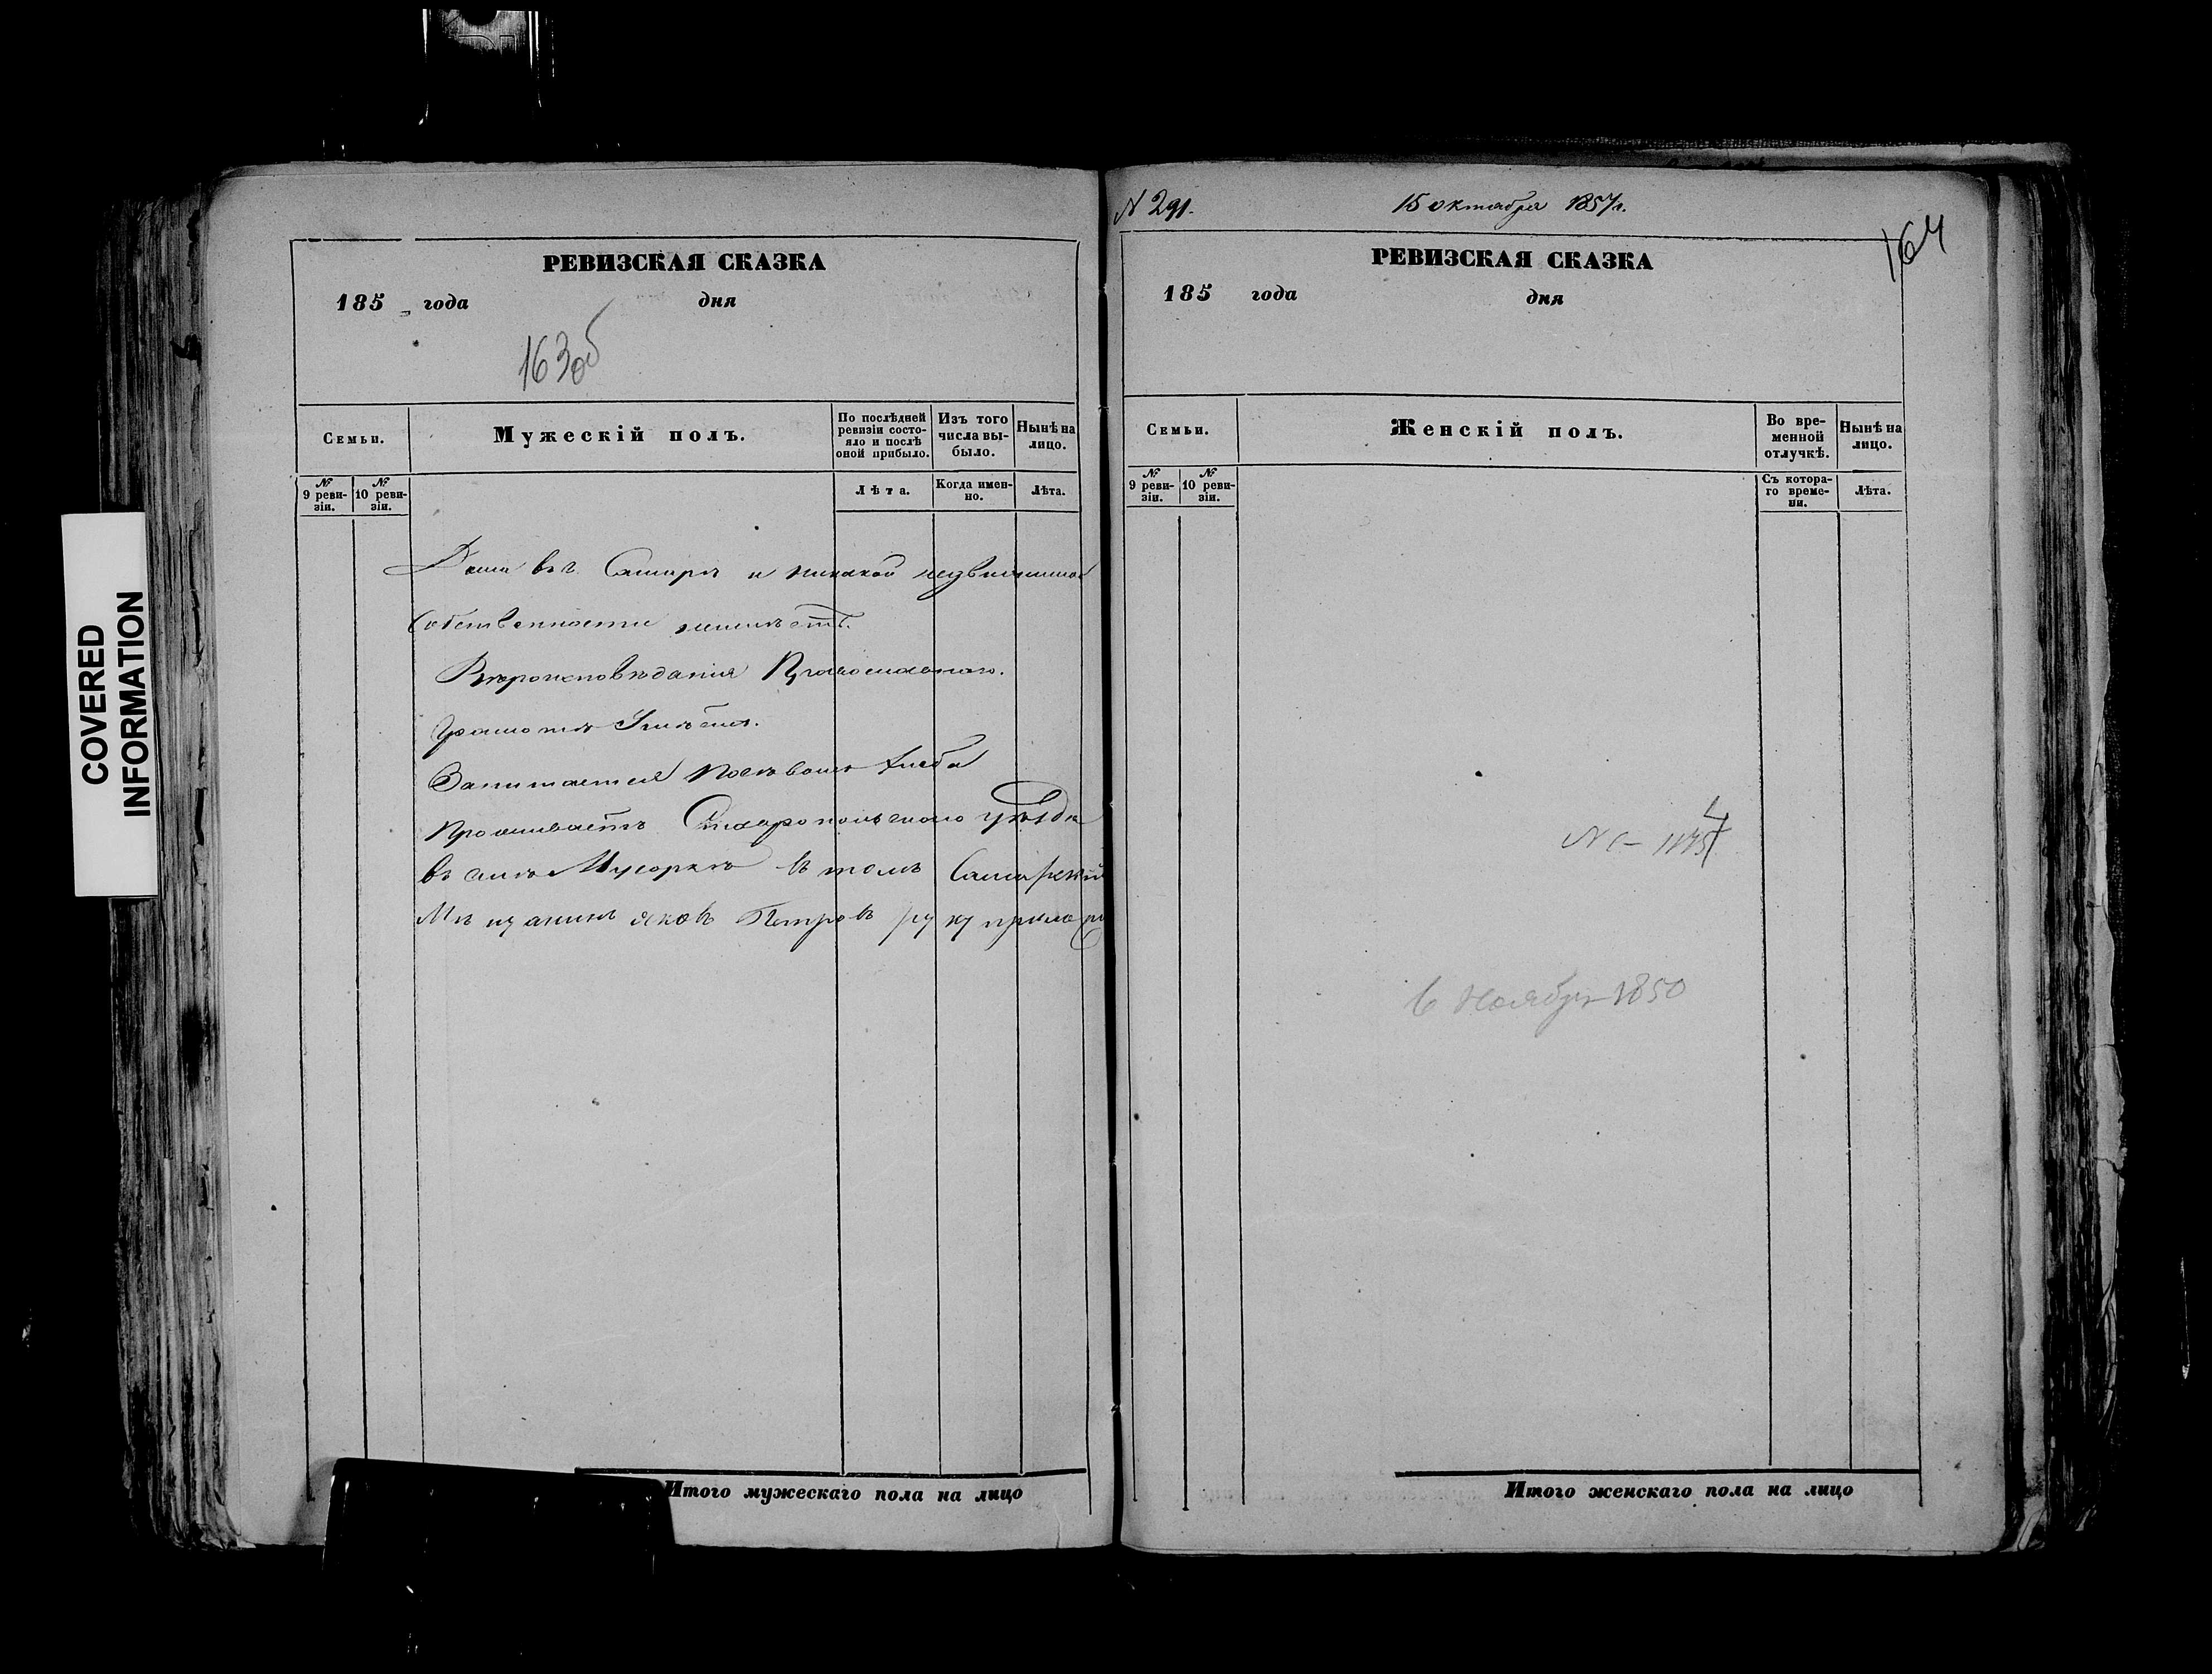 COVERED
INFORMATION
РЕВИЗСКАЯ СКАЗКА
185 года дня
163об
Семьи.
Мужескій полъ.
По послѣдней ревизіи состояло и послѣ оной прибыло.
Изъ того числа выбыло.
Нынѣ на лицо.
№ 9 ревизіи.
№ 10 ревизіи.
Лѣта.
Когда именно.
Лѣта.
Дома въ г. Самарѣ и никакой недвижимой
Собственности неимѣетъ.
Вѣроисповѣданія Православнаго.
Грамотѣ
Занимается посѣвомъ хлѣба
Проживаетъ Ставропольскаго уѣзда
въ селѣ Мусоркѣ въ томъ Самарскій
Мѣщанинъ Яковъ Петровъ руку приложи
Итого мужескаго пола на лицо
N 291.
15 октября 1857 г.
164
РЕВИЗСКАЯ СКАЗКА
185 года дня
Семьи.
Женскій полъ.
Во временной отлучкѣ.
Нынѣ на лицо.
№ 9 ревизіи.
№ 10 ревизіи.
Съ котораго времени.
Лѣта.
6 Ноября 1850
Итого женскаго пола на лицо